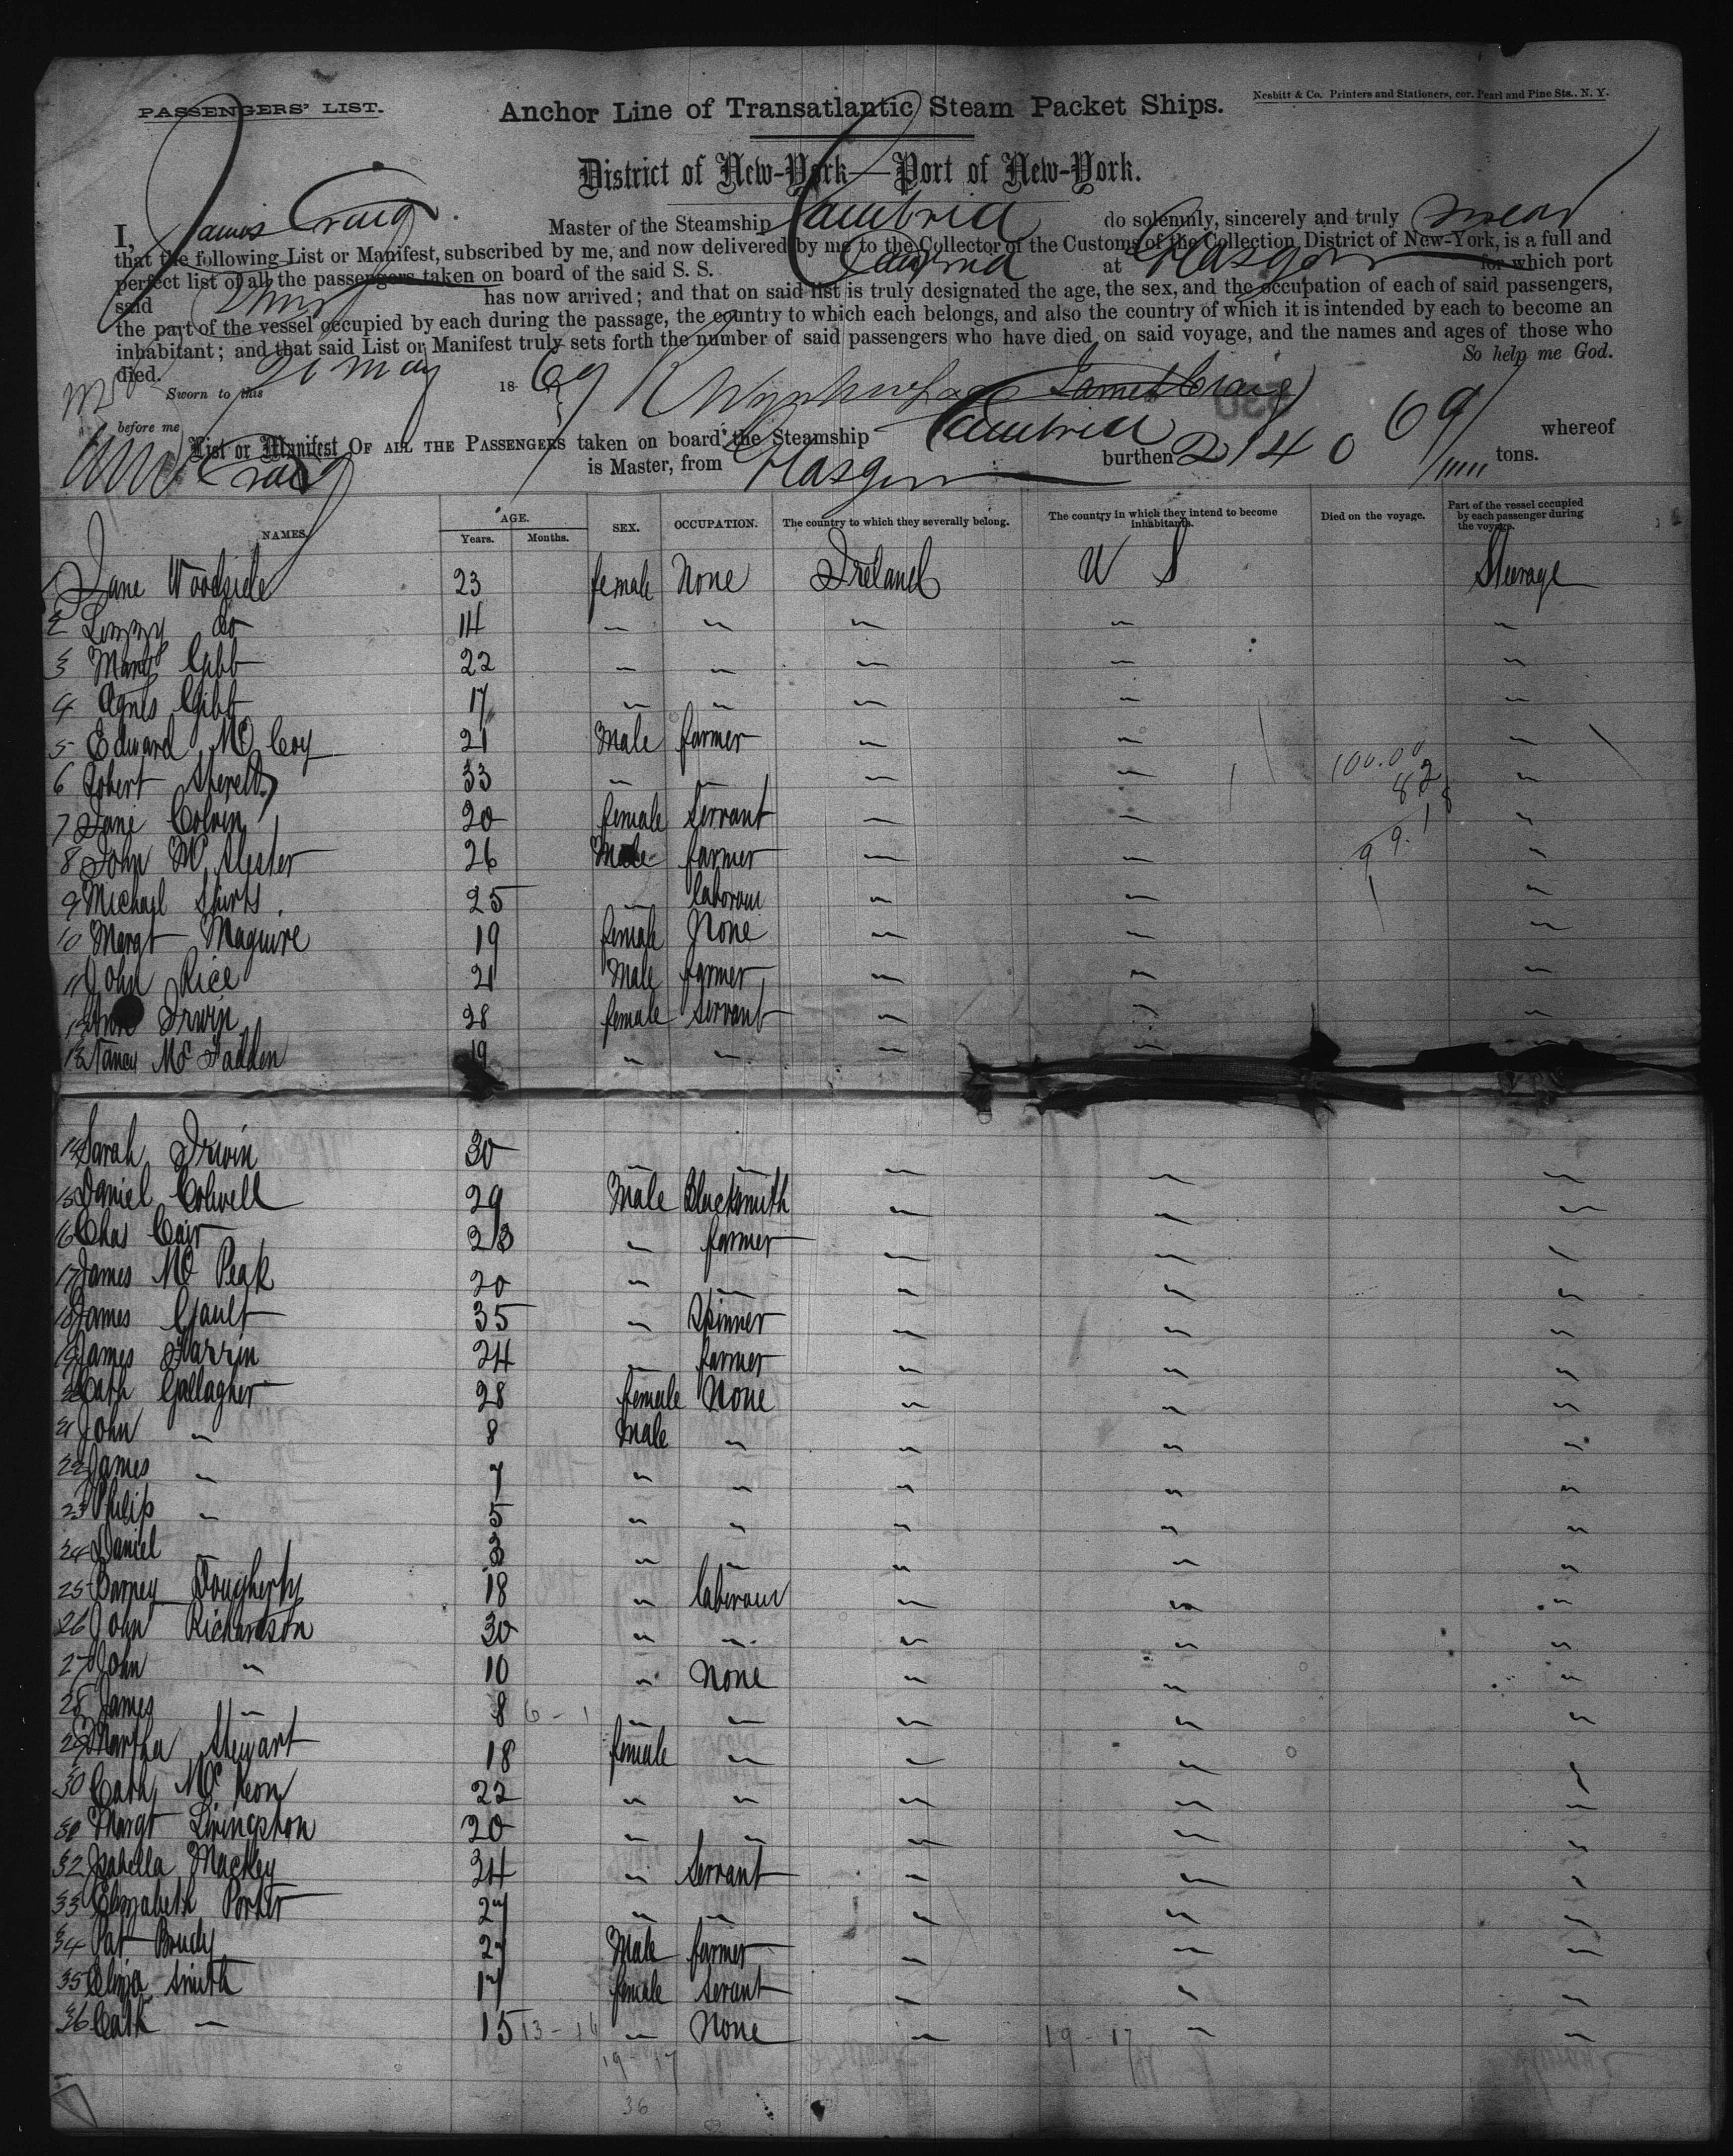 PASSENGERS' LIST.
Anchor Line of Transatlantic Steam Packet Ships.
Nesbitt & Co. Printers and Stationers, cor. Pearl and Pine Sts., N. Y.
District of New-York—Port of New-York.
I, James Craig Master of the Steamship Cambria do solemnly, sincerely and truly swear
that the following List or Manifest, subscribed by me, and now delivered by me to the Collector of the Customs of the Collection District of New-York, is a full and
perfect list of all the passengers taken on board of the said S. S. Cambria at Glasgow for which port
said Ship has now arrived; and that on said list is truly designated the age, the sex, and the occupation of each of said passengers,
the part of the vessel occupied by each during the passage, the country to which each belongs, and also the country of which it is intended by each to become an
inhabitant; and that said List or Manifest truly sets forth the number of said passengers who have died on said voyage, and the names and ages of those who
died. So help me God.
Sworn to this 26 May 1869 James Craig
before me
List or Manifest OF ALL THE PASSENGERS taken on board the Steamship Cambria whereof
Craig is Master, from Glasgow burthen 2140 69/ tons.
NAMES. AGE. Years. Months. SEX. OCCUPATION. The country to which they severally belong. The country in which they intend to become inhabitants. Died on the voyage. Part of the vessel occupied by each passenger during the voyage.
1 Jane Woodside 23 female None Ireland U S Steerage
2 Lizzy do 14 " " " " "
3 Mary Gibb 22 " " " " "
4 Agnes Gibb 17 " " " " "
5 Edward McCoy 21 Male farmer " " "
6 Robert 33 " " " " "
7 Jane Colvin 20 female Servant " " "
8 John McAlester 26 Male farmer " " "
9 Michael 25 " labourer " " "
10 Margt Maguire 19 female None " " "
11 John Rice 21 Male farmer " " "
12 Ann Irwin 28 female servant " " "
13 Nancy McFadden 19 " " " " "
14 Sarah Irwin 30 " " " " "
15 Daniel Colwell 29 Male Blacksmith " " "
16 Chas 23 " farmer " " "
17 James McPeak 20 " " " " "
18 James Gault 35 " Spinner " " "
19 James 24 " farmer " " "
20 Cath Gallagher 28 female None " " "
21 John " 8 Male " " " "
22 James " 7 " " " " "
23 Philip " 5 " " " " "
24 Daniel " 3 " " " " "
25 Barney Dougherty 18 " labourer " " "
26 John Richardson 30 " " " " "
27 John " 10 " None " " "
28 James " 8 6 - 1 " " " " "
29 Martha Stewart 18 female " " " "
30 Cath McKeon 22 " " " " "
31 Margt Livingston 20 " " " " "
32 Isabella Mackey 34 " Servant " " "
33 Elizabeth Porter 27 " " " " "
34 Pat Brady 27 Male farmer " " "
35 Eliza Smith 17 female servant " " "
36 Cath " 15 " None " " "
19 - 17
19 - 17
36